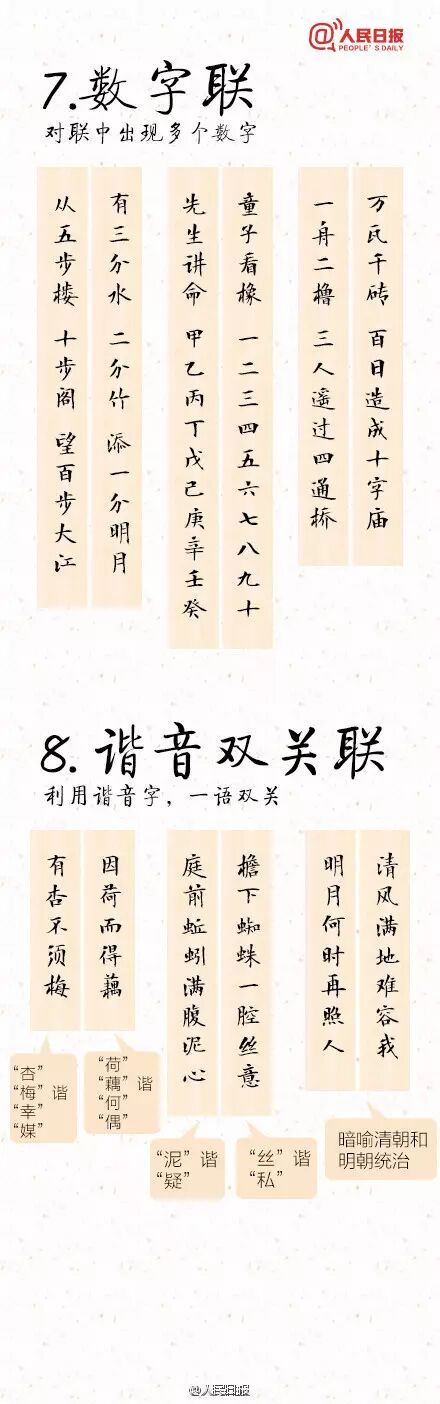 @人民日报
PEOPLE'S DAILY
7.数字联
对联中出现多个数字
万瓦千砖 百日造成十字庙
一舟二橹 三人遥过四通桥
童子看橡 一二三四五六七八九十
先生讲命 甲乙丙丁戊己庚辛壬癸
有三分水 二分竹 添一分明月
从五步楼 十步阁 望百步大江
8.谐音双关联
利用谐音字，一语双关
清风满地难容我
明月何时再照人
暗喻清朝和
明朝统治
檐下蜘蛛一腔丝意
庭前蚯蚓满腹泥心
“丝” 谐
“私”
“泥” 谐
“疑”
因荷而得藕
有杏不须梅
“荷”
“藕” 谐
“何”
“偶”
“杏”
“梅” 谐
“幸”
“媒”
@人民日报